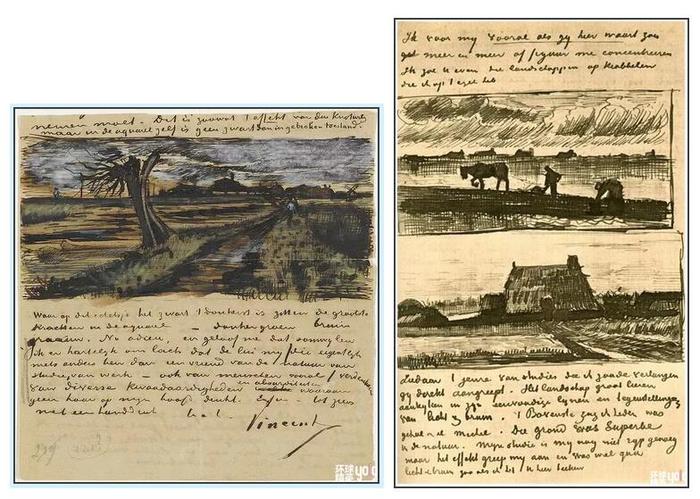 neuren moet – Dit is zoowat 't effekt van den Knotwilg
maar in de aquarel zelf is geen zwart dan in gebroken toestand.
Waar op dit schetsje het zwart 't donkerst is zitten de grootste
krachten in de aquarel – donkergroen bruin
graauw. Nu adieu, en geloof me dat soms wel eens
ik er hartelijk om lach dat de lui mij (die eigenlijk
niets anders ben dan een vriend van de natuur van
studie van werk – ook van menschen vooral) verdenken
van diverse kwaadaardigheden en absurditeiten waarvan
geen haar op mijn hoofd denkt. Enfin – tot ziens
met een handdruk t. à t.
Vincent
Ik voor my vooral als gy hier waart zou
meer en meer op figuur me concentreeren
Ik zal U even die landschappen op krabbelen
die ik op 't ezel heb
Ziedaar 't genre van studies die ik gaarne verlangen
gy direkt aangreep. Het landschap groot leeren
aankyken in zyn eenvoudige lynen en tegenstellingen
van licht & bruin. 't Bovenste zag ik heden was
geheel en al Michel. Die grond was superbe
in de natuur. Myn studie is my nog niet ryp genoeg
maar het effekt greep my aan en was wel qua
licht & bruin zoo als ik het U hier teeken